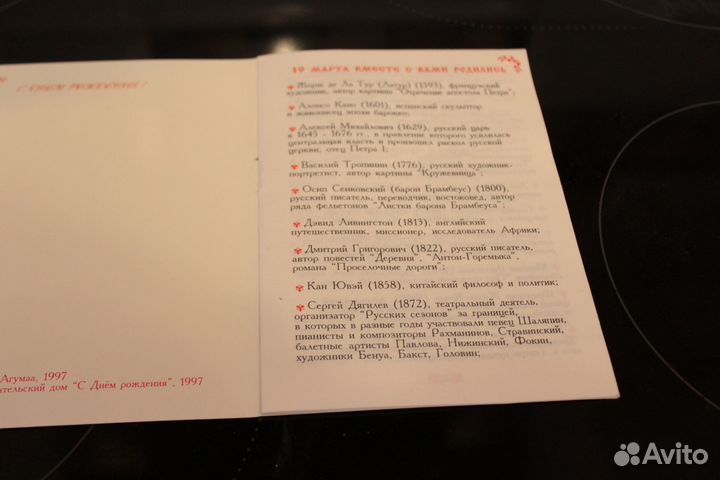 С ДНЕМ РОЖДЕНИЯ!
Агумаа, 1997
ательский дом "С Днём рождения", 1997
19 МАРТА ВМЕСТЕ С ВАМИ РОДИЛИСЬ
Жорж де Ла Тур (Латур) (1593), французский
художник, автор картины "Отречение апостола Петра";
Алонсо Кано (1601), испанский скульптор
и живописец эпохи барокко;
Алексей Михайлович (1629), русский царь
в 1645 - 1676 гг., в правление которого усилилась
центральная власть и произошел раскол русской
церкви, отец Петра I;
Василий Тропинин (1776), русский художник-
портретист, автор картины "Кружевница";
Осип Сенковский (барон Брамбеус) (1800),
русский писатель, переводчик, востоковед, автор
ряда фельетонов "Листки барона Брамбеуса";
Дэвид Ливингстон (1813), английский
путешественник, миссионер, исследователь Африки;
Дмитрий Григорович (1822), русский писатель,
автор повестей "Деревня", "Антон-Горемыка",
романа "Проселочные дороги";
Кан Ювэй (1858), китайский философ и политик;
Сергей Дягилев (1872), театральный деятель,
организатор "Русских сезонов" за границей,
в которых в разные годы участвовали певец Шаляпин,
пианисты и композиторы Рахманинов, Стравинский,
балетные артисты Павлова, Нижинский, Фокин,
художники Бенуа, Бакст, Головин;
Avito